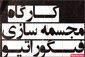 کارگاه
مجسمه سازی
فیگوراتیو